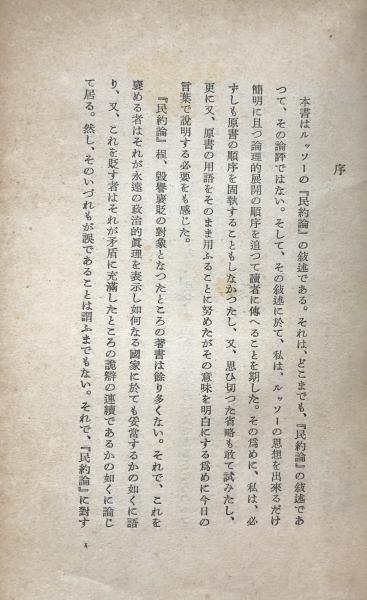 序
本書はルッソーの『民約論』の敘述である。それは、どこまでも、『民約論』の敘述であ
つて、その論評ではない。そして、その敘述に於て、私は、ルッソーの思想を出來るだけ
簡明に且つ論理的展開の順序を追つて讀者に傳へることを期した。その爲めに、私は、必
ずしも原書の順序を固執することもしなかつたし、又、思ひ切つた省略も敢て試みたし、
更に又、原書の用語をそのまま用ふることに努めたがその意味を明白にする爲めに今日の
言葉で說明する必要をも感じた。
『民約論』程、毀譽襃貶の對象となつたところの著書は餘り多くない。それで、これを
襃める者はそれが永遠の政治的眞理を表示し如何なる國家に於ても妥當するかの如くに語
り、又、これを貶す者はそれが矛盾に充滿したところの詭辯の連續であるかの如くに論じ
て居る。然し、そのいづれもが誤であることは謂ふまでもない。それで、『民約論』に對す